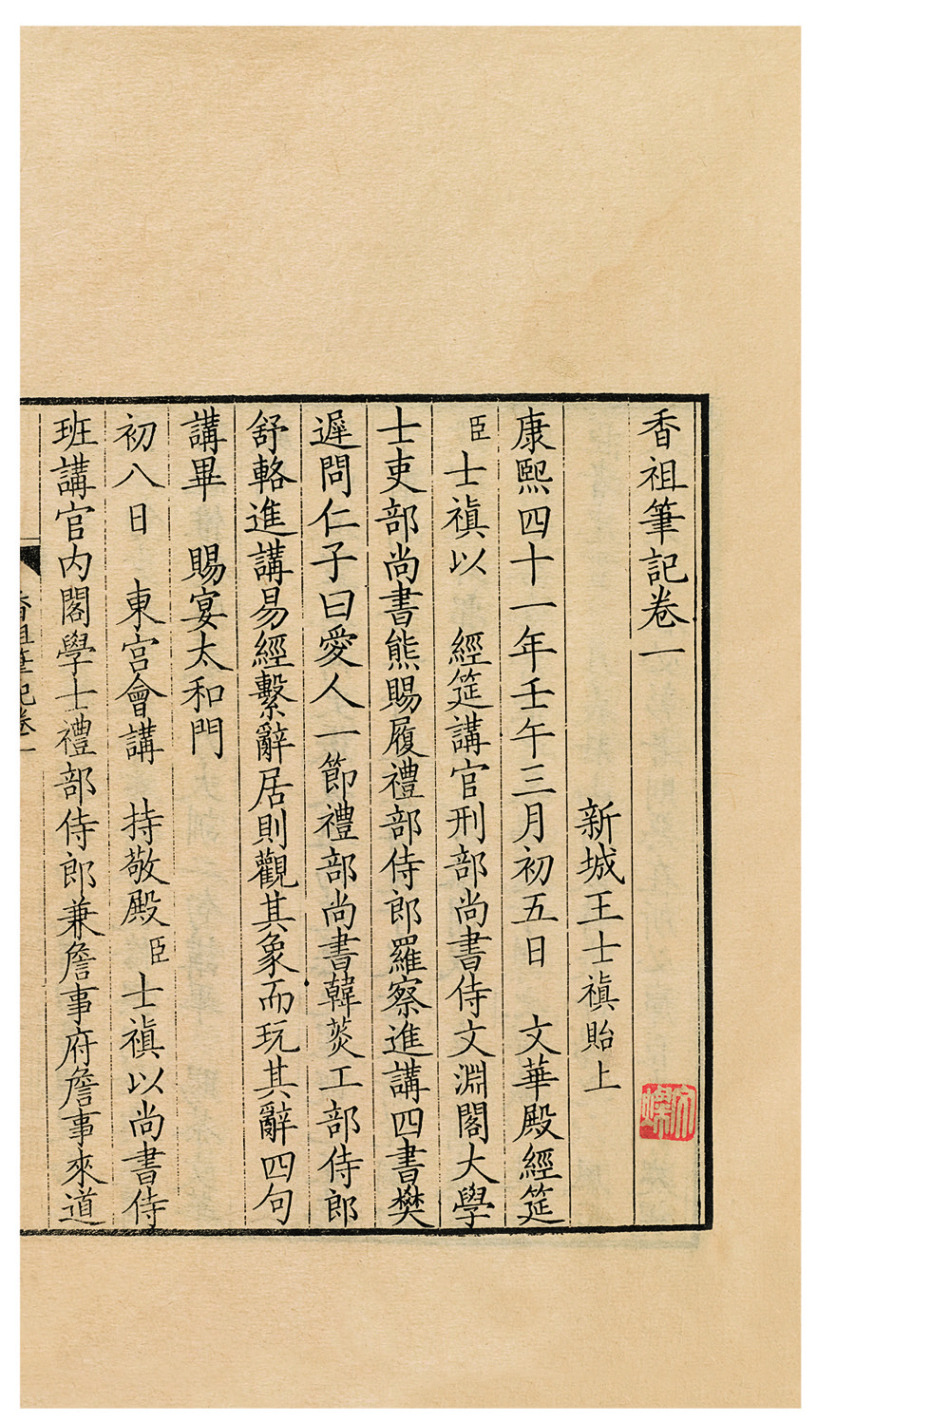 香祖筆記卷一
新城王士禛貽上
康熙四十一年壬午三月初五日 文華殿經筵
臣士禛以 經筵講官刑部尚書侍文淵閣大學
士吏部尚書熊賜履禮部侍郎羅察進講四書樊
遲問仁子曰愛人一節禮部尚書韓菼工部侍郎
舒輅進講易經繫辭居則觀其象而玩其辭四句
講畢 賜宴太和門
初八日 東宮會講 持敬殿臣士禛以尚書侍
班講官內閣學士禮部侍郎兼詹事府詹事來道
香祖筆記卷一